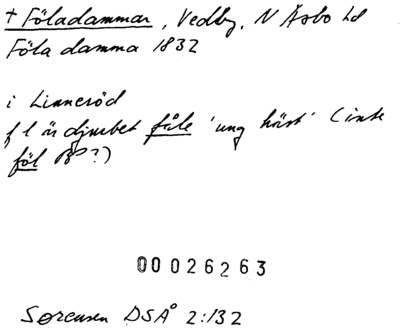 † Föladammar, Vedby, N Åsbo hd
Föla damma 1832
i Linneröd
f l är djurbet fåle 'ung häst' (inte
föl ?)
00026263
Sørensen DSÅ 2:132